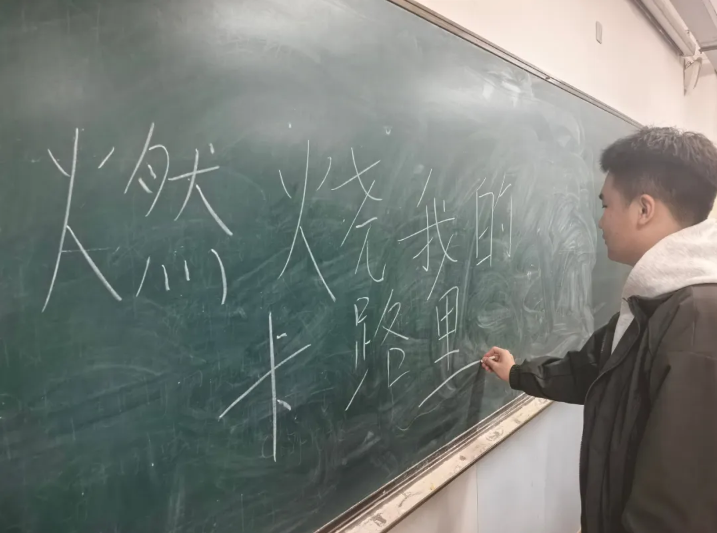 燃烧我的
卡路里